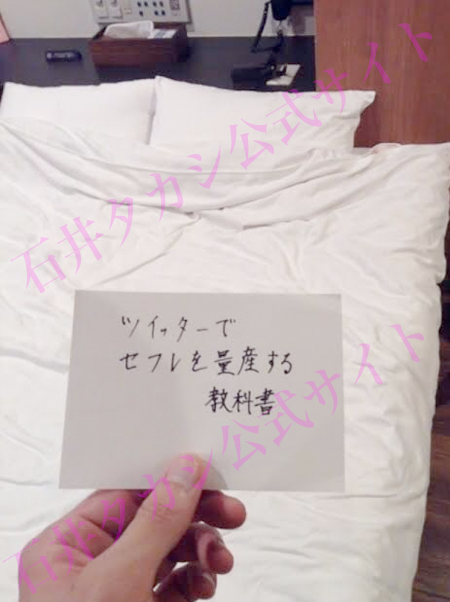 石井タカシ公式サイト
ツイッターで
セフレを量産する
教科書
石井タカシ公式サイト